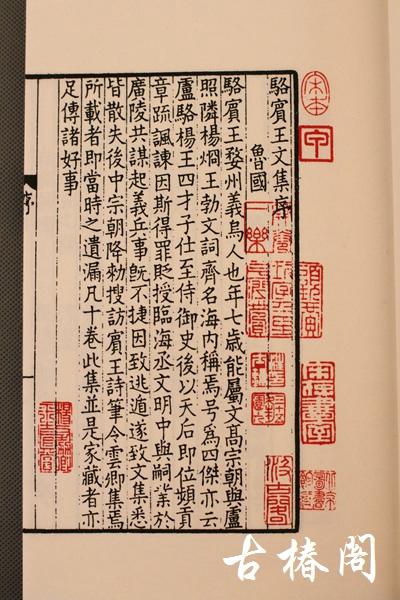 宋本
駱賓王文集序
魯國
駱賓王婺州義烏人也年七歲能屬文髙宗朝與盧
照隣楊烱王勃文詞齊名海内稱焉号為四傑亦云
盧駱楊王四才子仕至侍御史後以天后即位頻貢
章疏諷諫因斯得罪貶授臨海丞文明中與嗣業於
廣陵共謀起義兵事旣不捷因致逃遁遂致文集悉
皆散失後中宗朝降勑搜訪賓王詩筆今雲卿集焉
所載者即當時之遺漏凡十卷此集並是家藏者亦
足傳諸好事
序
古椿閣